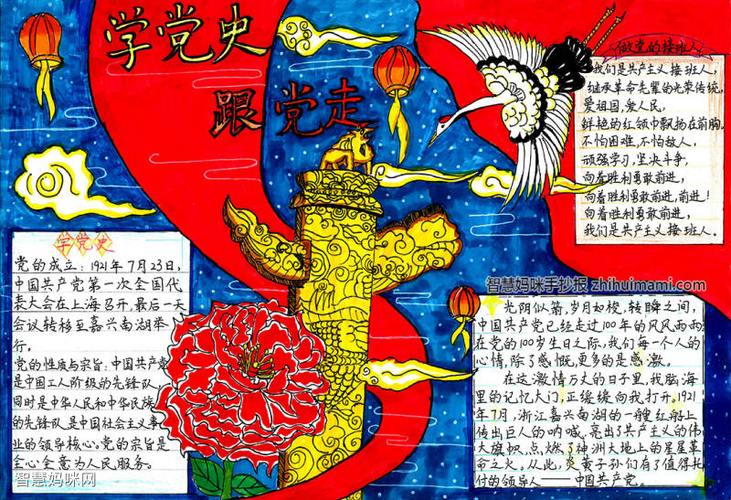 学党史
跟党走
做党的接班人
我们是共产主义接班人,
继承革命先辈的光荣传统,
爱祖国,爱人民,
鲜艳的红领巾飘扬在前胸。
不怕困难,不怕敌人,
顽强学习,坚决斗争,
向着胜利勇敢前进,
向着胜利勇敢前进,前进!
向着胜利勇敢前进,
我们是共产主义接班人。
学党史
党的成立:1921年7月23日,
中国共产党第一次全国代
表大会在上海召开,最后一天
会议转移至嘉兴南湖举
行。
党的性质与宗旨:中国共产党
是中国工人阶级的先锋队,
同时是中华人民和中华民族
的先锋队,是中国社会主义事
业的领导核心。党的宗旨是
全心全意为人民服务。
智慧妈咪手抄报 zhihuimami.com
光阴似箭,岁月如梭,转瞬之间,
中国共产党已经走过100年的风风雨雨
在党的100岁生日之际,我们每一个人的
心情,除了感慨,更多的是感激。
在这激情万丈的日子里,我脑海
里的记忆大门,正缓缓向我打开。1921
年7月,浙江嘉兴南湖的一艘红船上
传出巨人的呐喊,亮出了共产主义的伟
大旗帜,点燃了神洲大地上的星星革
命之火,从此,炎黄子孙们有了值得托
付的领导人——中国共产党。
智慧妈咪网